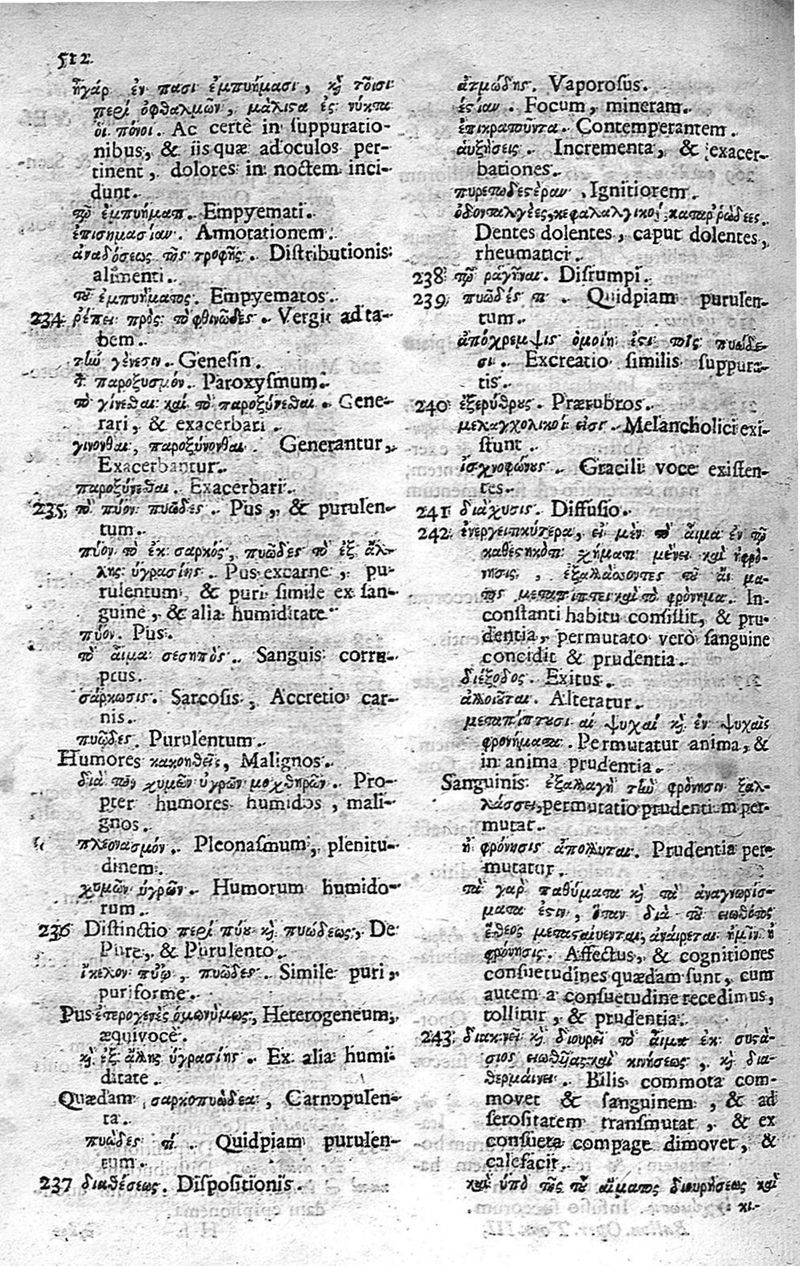 512
ἢγάρ ἐν πασι ἐμπυήμασι, κὴ τοῖσι
περὶ ὀφθαλμῶν, μάλιστα ἐς νύκτα
οἱ πόνοι. Ac certè in suppuratio-
nibus, & iis quæ ad oculos per-
tinent, dolores in noctem inci-
dunt.
τῷ ἐμπυήματι. Empyemati.
ἐπισημασίαν. Annotationem.
ἀναδόσεως τῆς τροφῆς. Distributionis
alimenti.
τοῦ ἐμπυήματος. Empyematos.
234 ῥέπει πρὸς τὸ φθινῶδες. Vergit ad ta-
bem.
τὴν γένεσιν. Genesin.
τ παροξυσμόν. Paroxysmum.
τὸ γίνεσθαι καὶ τὸ παροξύνεσθαι. Gene-
rari, & exacerbari.
γινονθαι, παροξύνονθαι. Generantur,
Exacerbantur.
παροξύνεσθαι. Exacerbari.
235 τὸ πύον πυῶδες. Pus, & purulen-
tum.
πύον τὸ ἐκ σαρκός, πυῶδες τὸ ἐξ ἄλ-
λης ὑγρασίης. Pus ex carne, pu-
rulentum, & puri simile ex san-
guine, & alia humiditate.
πῦον. Pus.
τὸ αἷμα σεσηπὸς. Sanguis corru-
ptus.
σάρκωσις. Sarcosis, Accretio car-
nis.
πυῶδες. Purulentum.
Humores κακοηθεῖς, Malignos.
διὰ τῶν χυμῶν ὑγρῶν μοχθηρῶν. Pro-
pter humores humidos, mali-
gnos.
πλεονασμόν. Pleonasmum, plenitu-
dinem.
χυμῶν ὑγρῶν. Humorum humido-
rum.
236 Distinctio περὶ πύου κὴ πυώδεως, De
Pure, & Purulento.
ἴκελον πύῳ, πυῶδες. Simile puri,
puriforme.
Pus ἑτερογενὲς ὁμωνύμως, Heterogeneum,
æquivocè.
κὴ ἐξ ἄλης ὑγρασίης. Ex alia humi-
ditate.
Quædam σαρκοπυώδεα, Carnopulen-
ta.
πυῶδες τι. Quidpiam purulen-
tum.
237 διαθέσεως. Dispositionis.
ἀτμώδης. Vaporosus.
ἑστίαν. Focum, mineram.
ἐπικρατοῦντα. Contemperantem.
αὐξήσεις. Incrementa, & exacer-
bationes.
πυρετωδεστέραν. Ignitiorem.
ὀδονταλγέες, κεφαλαλγικοί, καταρρώδεες.
Dentes dolentes, caput dolentes,
rheumatici.
238 τῷ ῥαγῆναι. Disrumpi.
239 πυῶδές τι. Quidpiam purulen-
tum.
ἀπόχρεμψις ὁμοίη ἐστὶ τοῖς πυώδε-
σι. Excreatio similis suppura-
tis.
240 ἐξερύθρους. Prærubros.
μελαγχολικοί εἰσι. Melancholici exi-
stunt.
ἰσχνοφώνους. Gracili voce existen-
tes.
241 διάχυσις. Diffusio.
242 ἐνεργειτικύτερα, εἰ μὲν τὸ αἷμα ἐν τῷ
καθεστηκότι χήματι μένει καὶ ἡ φρό-
νησις, ἐξαλάσσοντες τοῦ αἵ μα-
τος μεταπίπτει καὶ τὸ φρόνημα. In
constanti habitu consistit, & pru-
dentia, permutato verò sanguine
concidit & prudentia.
διέξοδος. Exitus.
ἀλοιοῦται. Alteratur.
μεταπίπτουσι αἱ ψυχαί κὴ ἐν ψυχαῖς
φρονήματα. Permutatur anima, &
in anima prudentia.
Sanguinis ἐξαλαγὴ τὴν φρόνησιν ἐξαλ-
λάσσει, permutatio prudentiam per-
mutat.
ἡ φρόνησις ἀπόλλυται. Prudentia per-
mutatur.
τὰ γὰρ παθήματα κὴ τὰ ἀναγνωρίσ-
ματα ἐστιν, ὅταν διὰ τοῦ εἰωθότος
ἤθεος μεταβαίνονται, ἀναιρεται ἡμῖν ἡ
φρόνησις. Affectus, & cognitiones
consuetudines quædam sunt, cum
autem a consuetudine recedimus,
tollitur, & prudentia.
243 διακινεῖ κὴ διουρεῖ τὸ αἷμα ἐκ συστά-
σιος εἰωθυίας καὶ κινήσεως, κὴ δια-
θερμαίνει. Bilis commota com-
movet & sanguinem, & ad
serositatem transmutat, & ex
consueta compage dimovet, &
calefacit.
καὶ ὑπὸ τῆς τοῦ αἵματος διουρήσεως καὶ
κι-